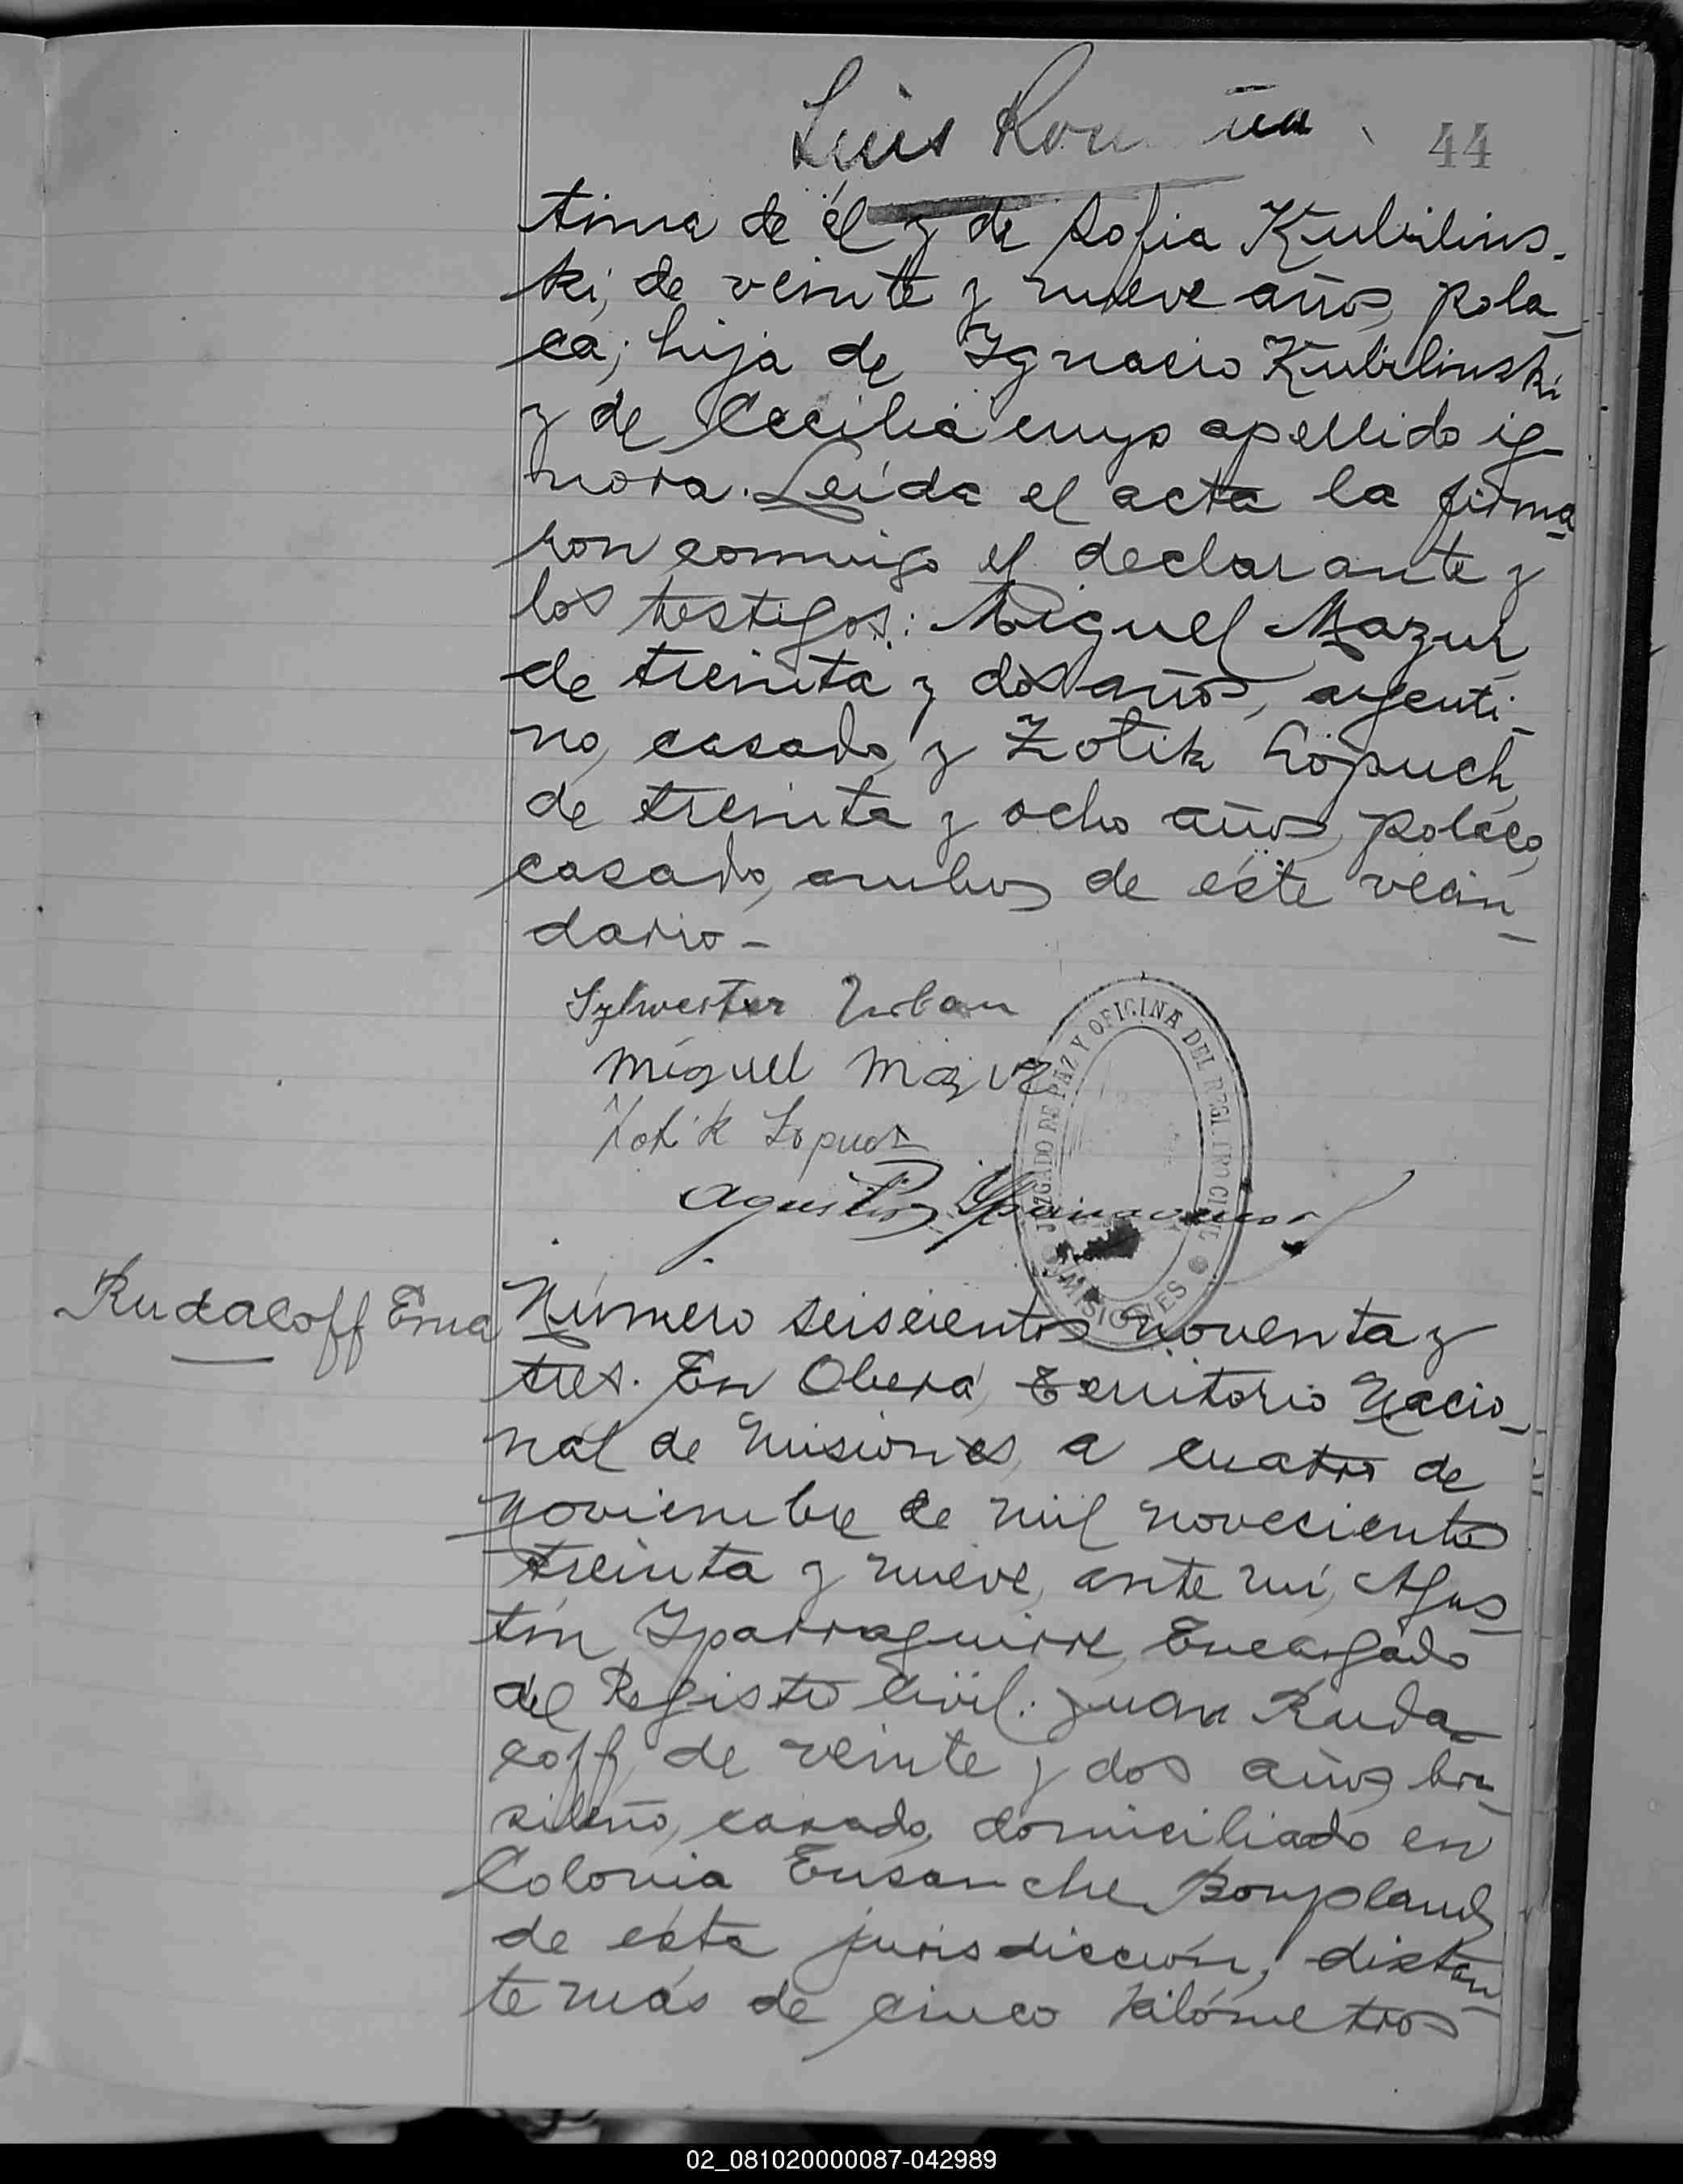 Luis
44
tima de él y de Sofia Kubilins-
ki, de veinte y nueve años, pola-
ca; hija de Ygnacio Kubilinski
y de Cecilia cuyo apellido ig-
nora. Leída el acta la firma-
ron conmigo el declarante y
los testigos: Miguel Mazur
de treinta y dos años, argenti-
no, casado, y Zotik Lopuch,
de treinta y ocho años, polaco,
casado, ambos de este vecin-
dario-
Sylwester Urban
Miguel Mazur
Zotik Lopuch
Agustin Yparraguirre
JUZGADO DE PAZ Y OFICINA DEL REGISTRO CIVIL
MISIONES
Rudacoff Ema
Número seiscientos noventa y
tres. En Oberá, Territorio Nacio-
nal de Misiones, a cuatro de
Noviembre de mil novecientos
treinta y nueve, ante mí, Agus-
tín Yparraguirre, Encargado
del Registro Civil: Juan Ruda-
coff, de veinte y dos años, bra-
sileño, casado, domiciliado en
Colonia Ensanche Bonpland
de esta jurisdicción, distan-
te más de cinco kilómetros
02_081020000087-042989